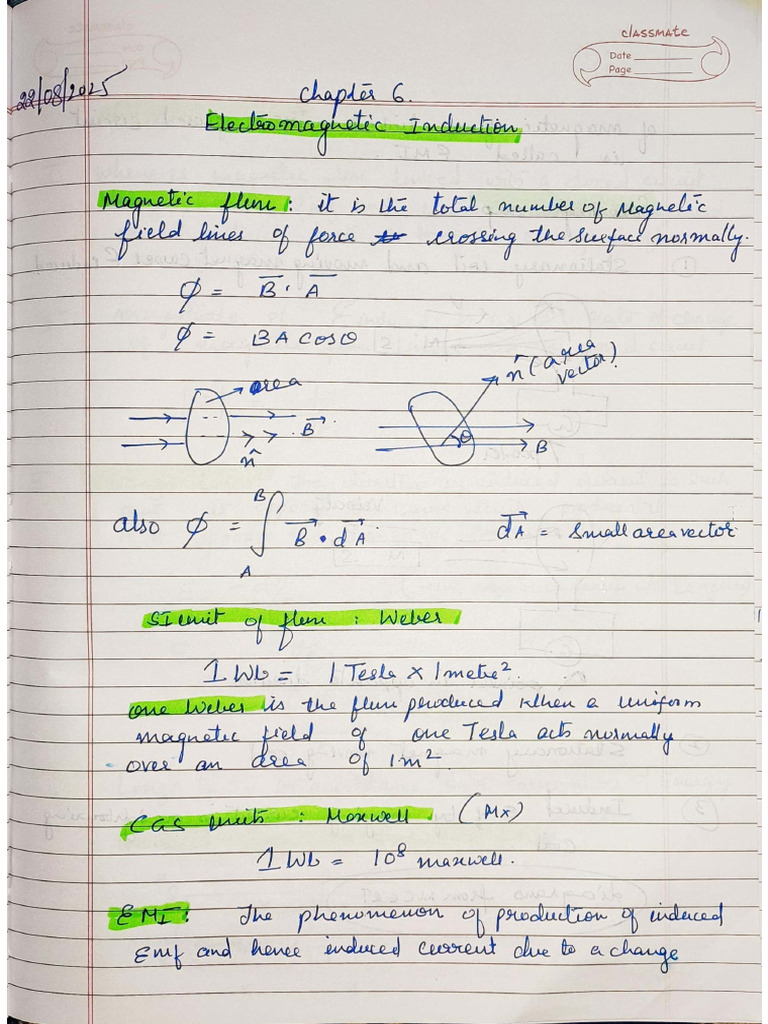 classmate
Date
Page
22/08/2025
Chapter 6.
Electromagnetic Induction
Magnetic flux: it is the total number of Magnetic
field lines of force crossing the surface normally.
ϕ = B⃗ · A⃗
ϕ = BA cosθ
area
n̂ (area vector)
B⃗
n̂
θ
B
also ϕ = ∫_A^B B⃗ · dA⃗
dA⃗ = small area vector
SI unit of flux : Weber
1 Wb = 1 Tesla × 1 metre²
one Weber is the flux produced when a uniform
magnetic field of one Tesla acts normally
over an area of 1m².
CGS units : Maxwell (Mx)
1 Wb = 10⁸ maxwell.
EMI : The phenomenon of production of induced
Emf and hence induced current due to a change